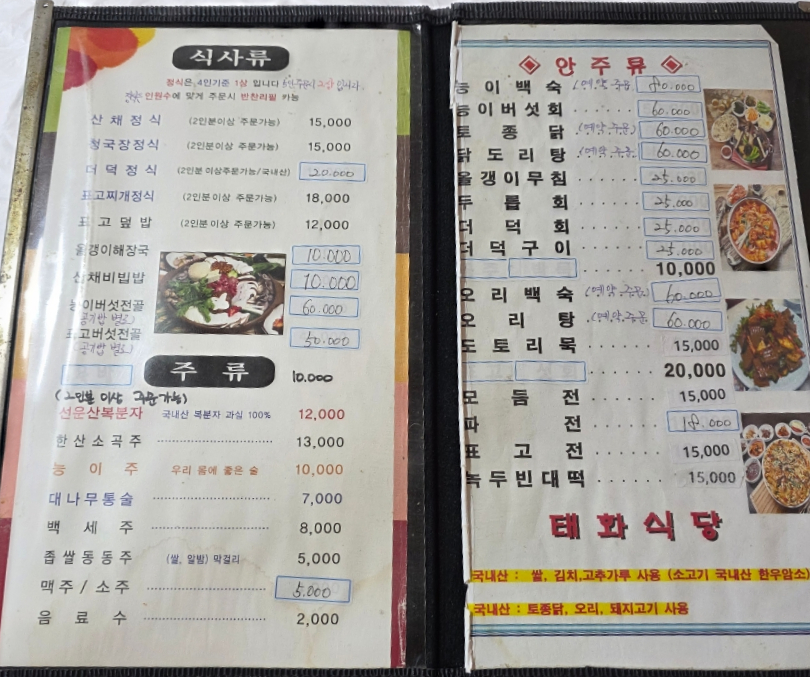 식사류
정식은 4인기준 1상 입니다
인원수에 맞게 주문시 반찬리필 가능
산채정식 (2인분이상 주문가능) 15,000
청국장정식 (2인분이상 주문가능) 15,000
더덕정식 (2인분이상주문가능/국내산) 20.000
표고찌개정식 (2인분이상 주문가능) 18,000
표고덮밥 (2인분이상 주문가능) 12,000
올갱이해장국 10.000
산채비빔밥 10.000
능이버섯전골 60.000
공기밥 별도
표고버섯전골 50.000
공기밥 별도
주류
10.000
(2인분 이상 주문가능)
선운산복분자 국내산 복분자 과실 100% 12,000
한산소곡주 13,000
능이주 우리 몸에 좋은 술 10,000
대나무통술 7,000
백세주 8,000
좁쌀동동주 (쌀, 알밤) 막걸리 5,000
맥주/소주 5.000
음료수 2,000
안주류
능이백숙 (예약주문) 80.000
능이버섯회 60.000
토종닭 (예약주문) 60.000
닭도리탕 (예약주문) 60.000
올갱이무침 25.000
두릅회 25.000
더덕회 25.000
더덕구이 25.000
10,000
오리백숙 (예약주문) 60.000
오리탕 (예약주문) 60.000
도토리묵 15,000
20,000
모둠전 15,000
파전 18.000
표고전 15,000
녹두빈대떡 15,000
태화식당
국내산 : 쌀, 김치,고추가루 사용 (소고기 국내산 한우암소)
국내산 : 토종닭, 오리, 돼지고기 사용